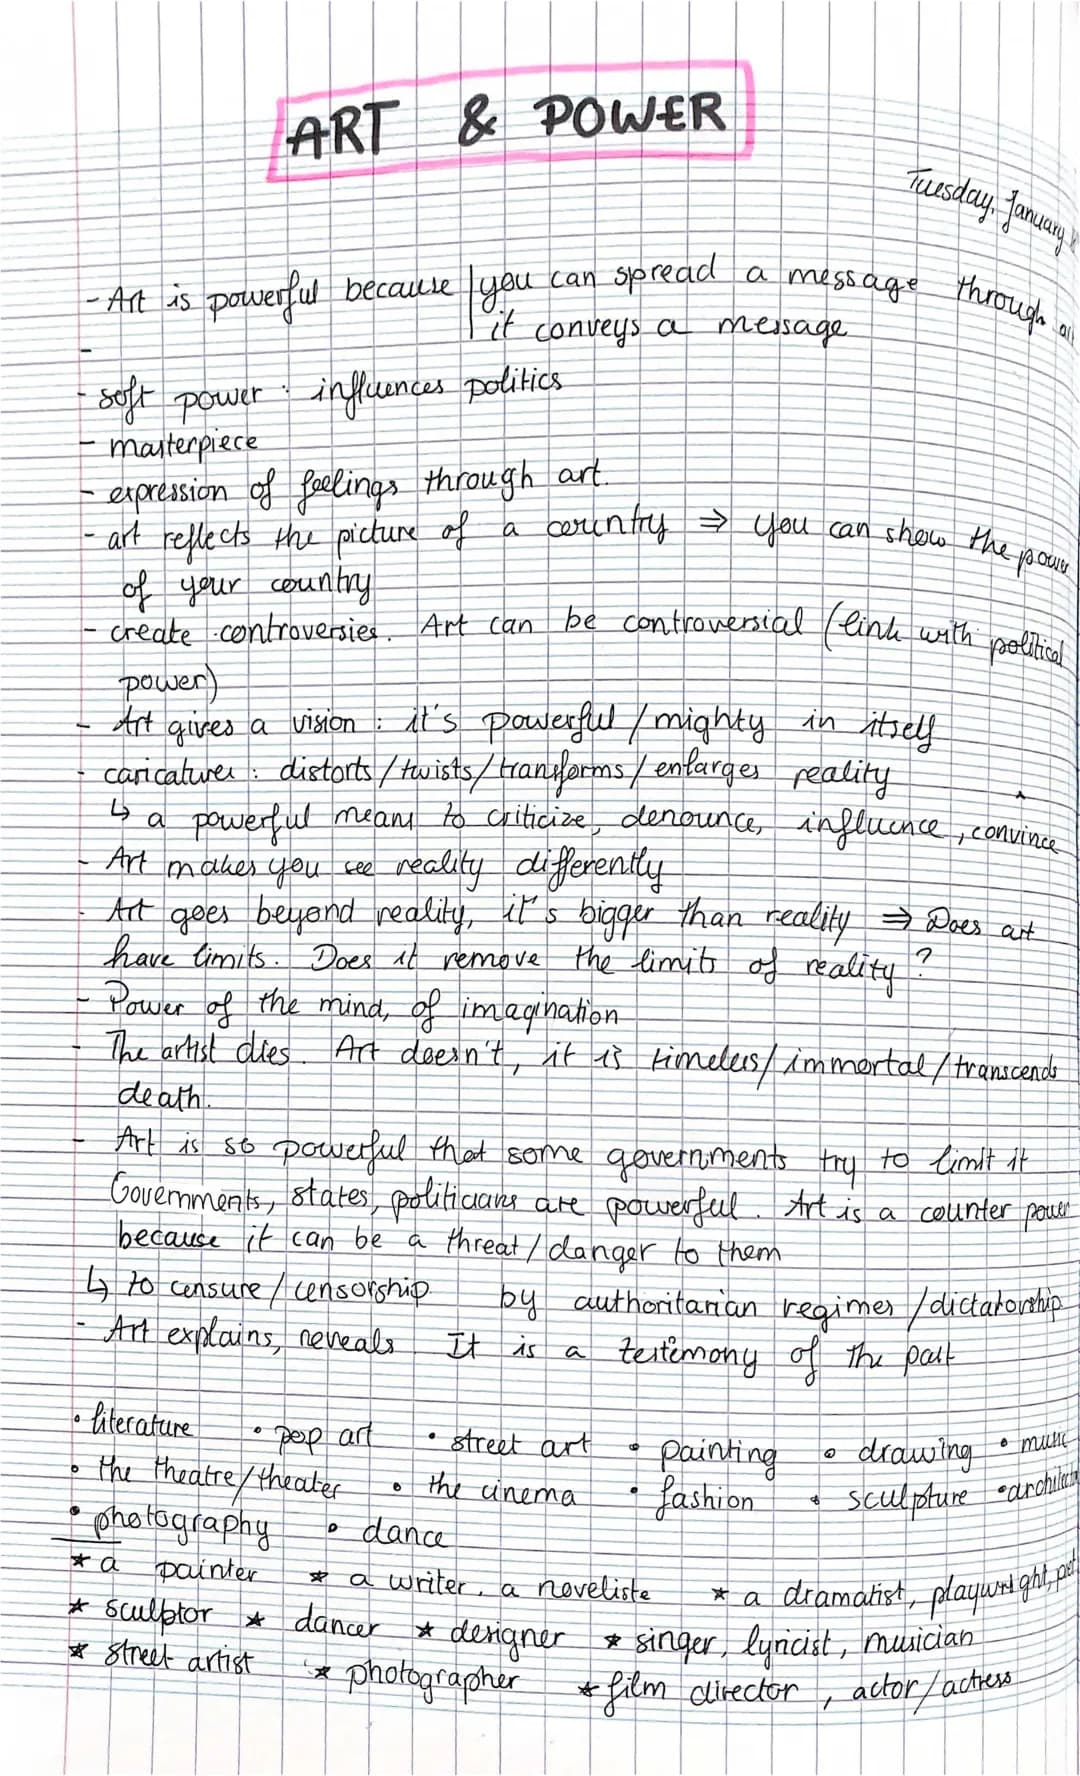 ART & POWER
Tuesday, January
- Art is powerful because | you can spread a message through
it conveys a message
-
- soft power : influences politics
- masterpiece
- expression of feelings through art.
- art reflects the picture of a country ⇒ you can show the power
of your country
- create controversies. Art can be controversial (link with political
power)
- Art gives a vision : it's powerful / mighty in itself
- caricatures : distorts / twists / transforms / enlarges reality
↳ a powerful means to criticize, denounce, influence, convince
- Art makes you see reality differently
- Art goes beyond reality, it's bigger than reality ⇒ Does art
have limits. Does it remove the limits of reality ?
- Power of the mind, of imagination
- The artist dies. Art doesn't, it is timeless / immortal / transcends
death.
- Art is so powerful that some governments try to limit it
Governments, states, politicians are powerful. Art is a counter power
because it can be a threat / danger to them
↳ to censure / censorship by authoritarian regimes / dictatorship
- Art explains, reveals It is a testimony of the past
• literature • pop art • street art • painting • drawing • music
• the theatre/theater • the cinema • fashion • sculpture •
• photography • dance
* a painter * a writer, a noveliste * a dramatist, playwright,
* sculptor * dancer * designer * singer, lyricist, musician
* street artist * photographer * film director, actor/actress